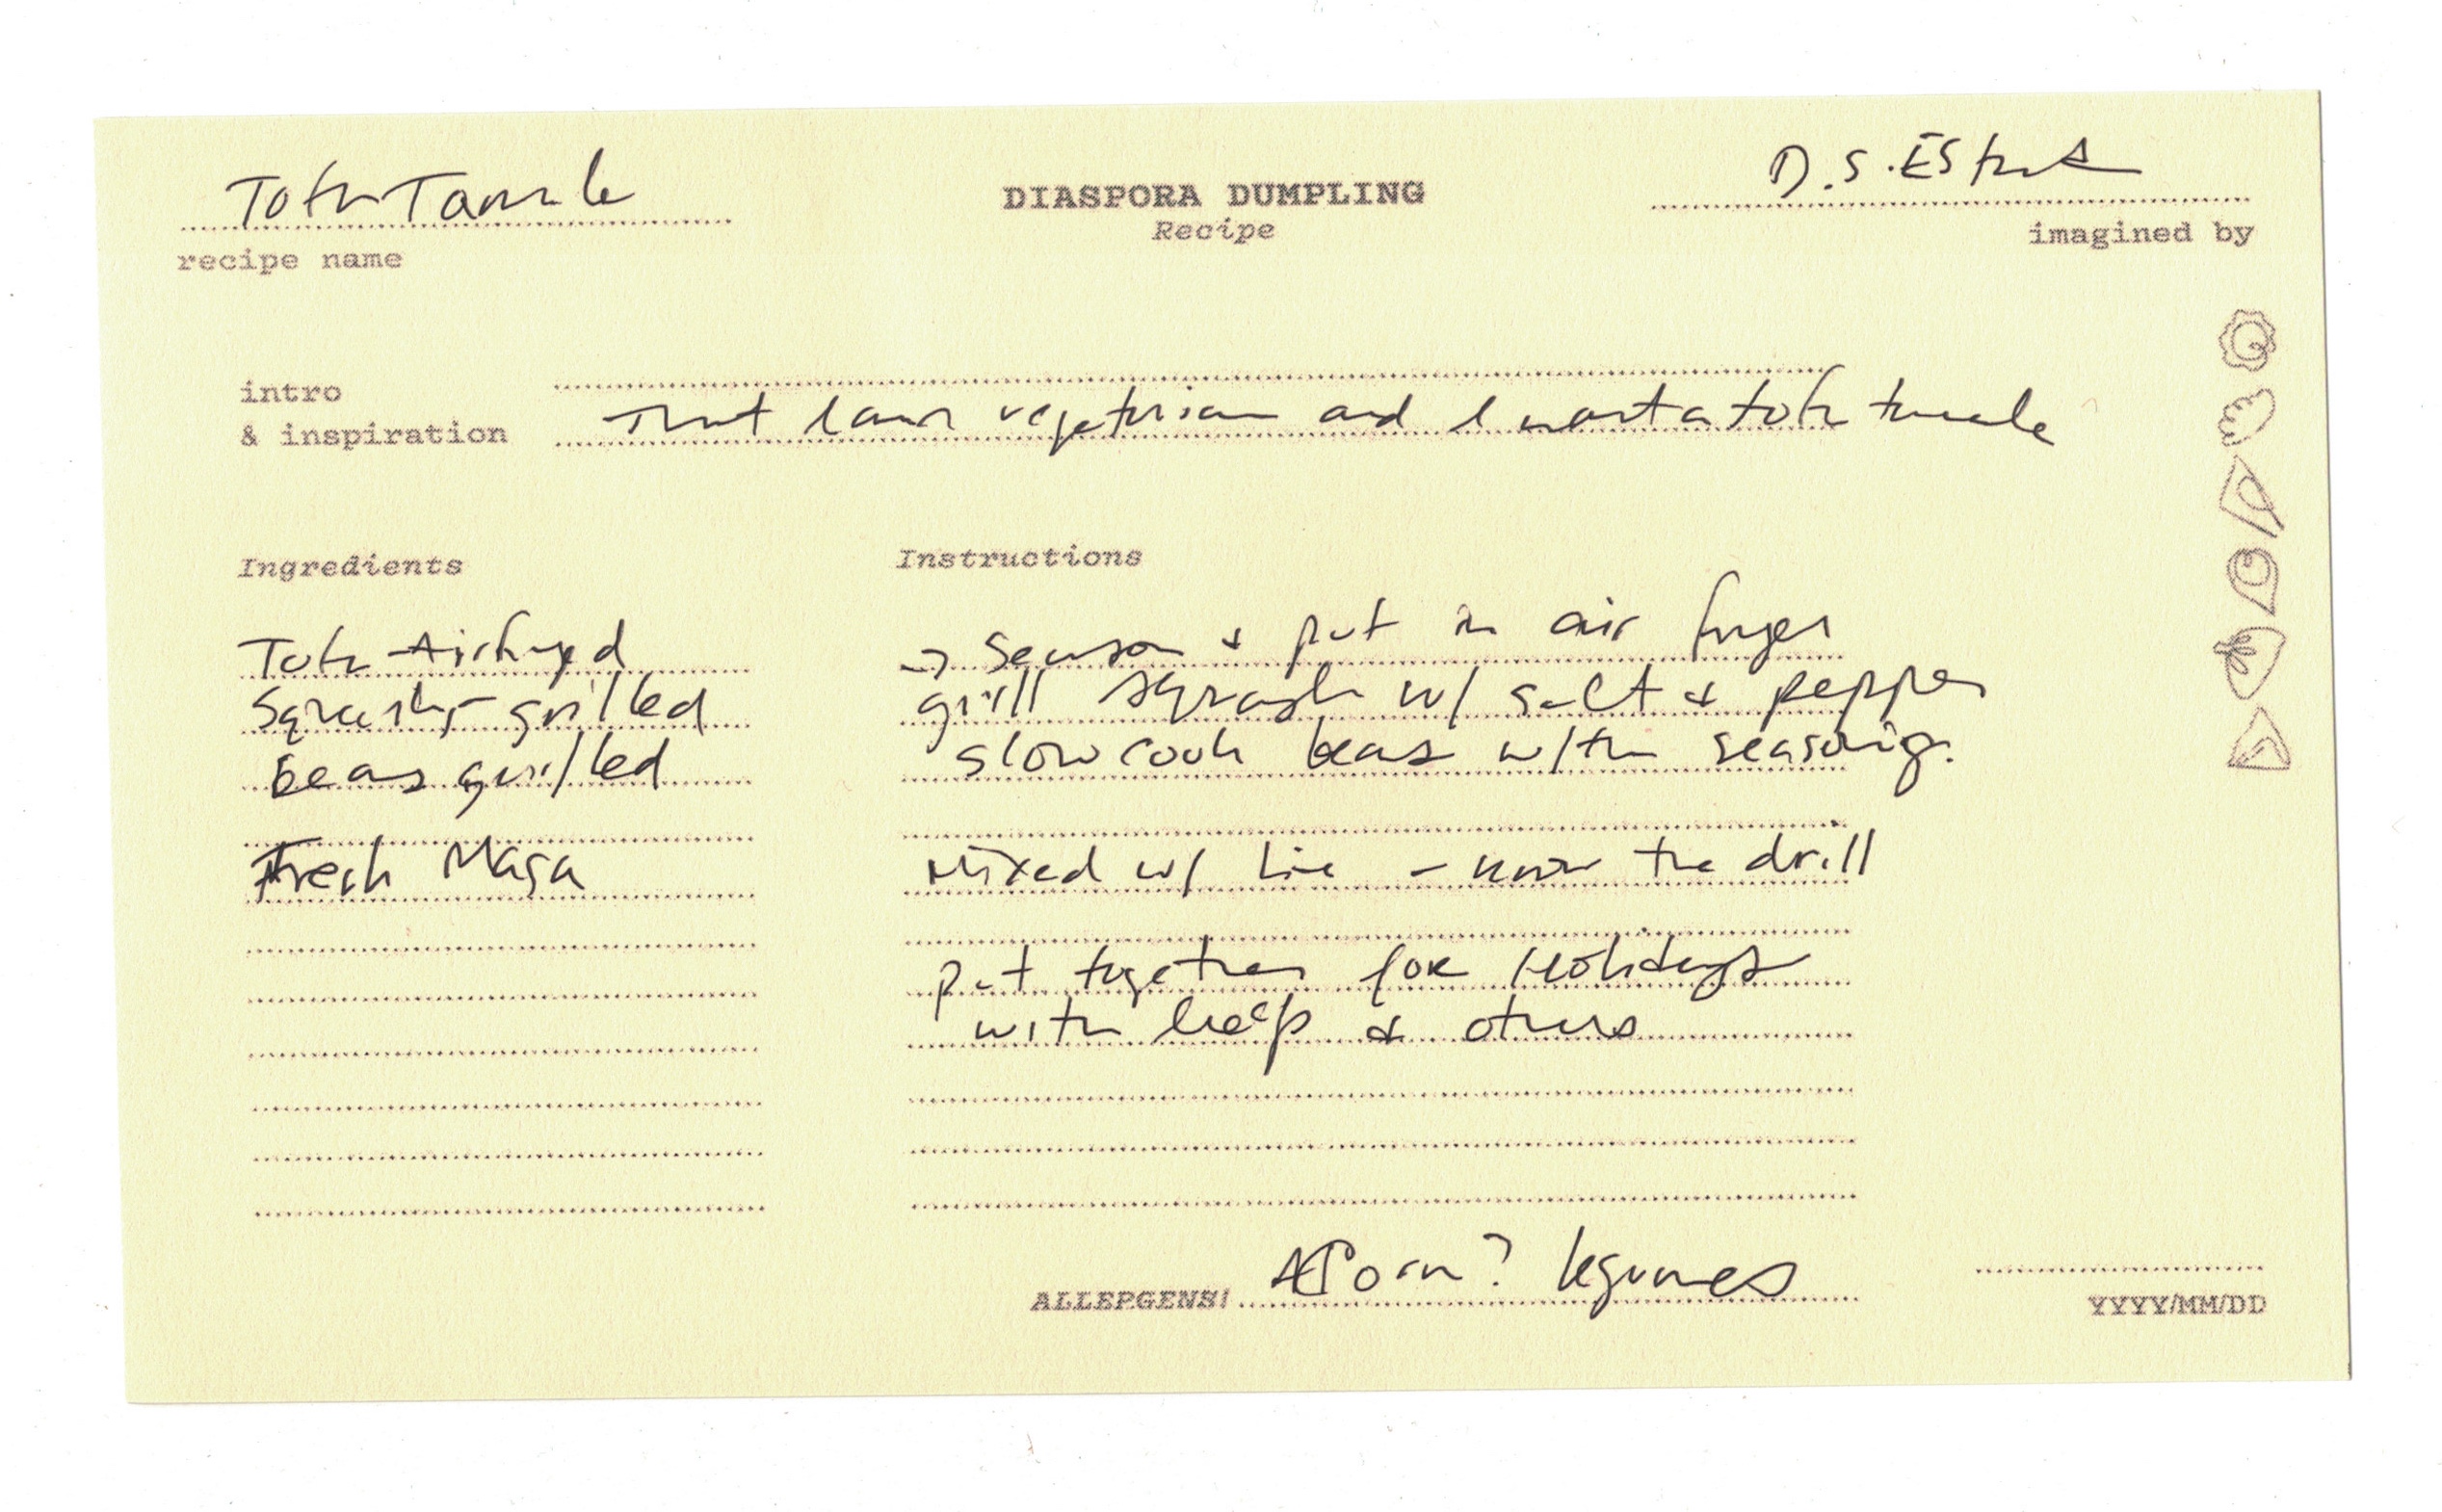 Tofu Tamale
recipe name
DIASPORA DUMPLING
Recipe
D. S. Estrada
imagined by
intro
& inspiration
That I am vegetarian and I want a tofu tamale
Ingredients
Tofu - Airfryed
Squash - grilled
beans grilled
Fresh Masa
Instructions
→ Season & put in air fryer
grill squash w/ salt & pepper
slow cook beans with seasoning.
Mixed w/ - know the drill
put together for Holidays
with help & others
ALLERGENS! Corn? legumes
YYYY/MM/DD